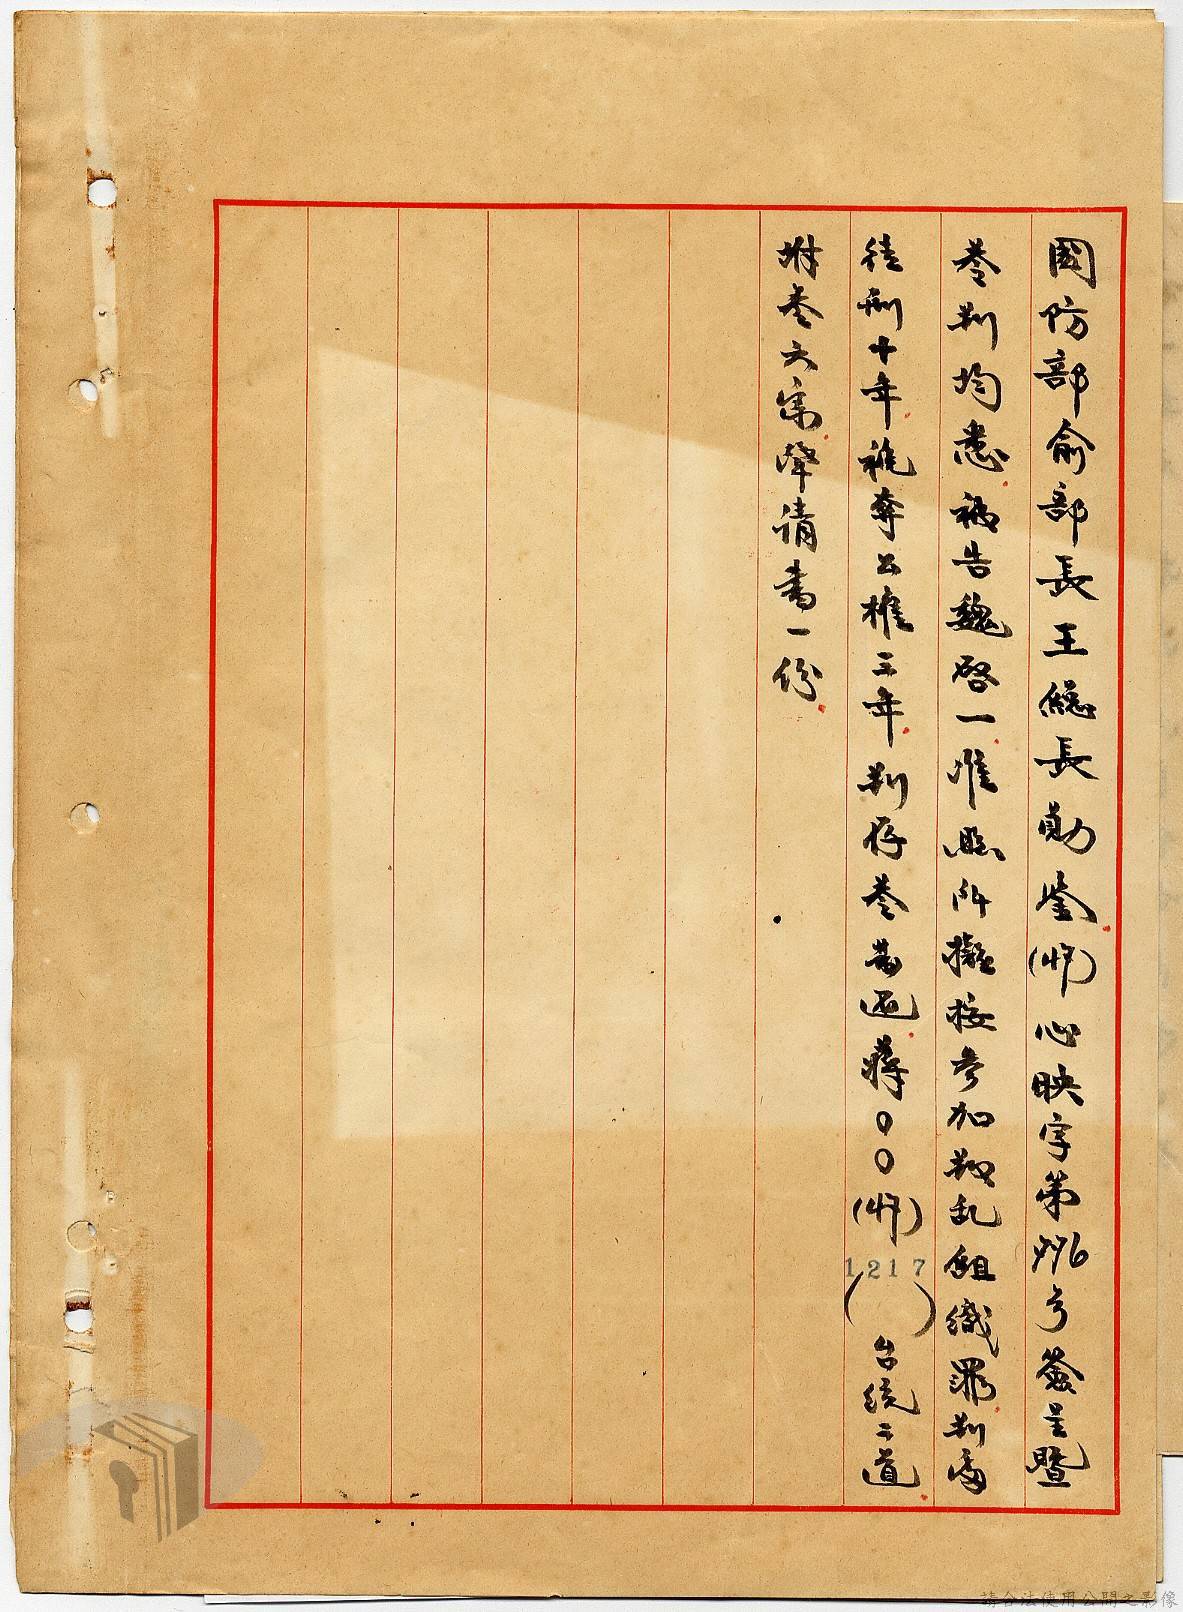 國防部俞部長王總長勛鑒(卌)心映字第996号簽呈暨
卷判均悉被告魏啓一准照所擬按參加叛乱組織罪判處
徒刑十年褫奪公權三年判存卷發還蔣○○(卌)
1217
( )台統二道
附卷六宗聲請書一份
請合法使用公開之影像